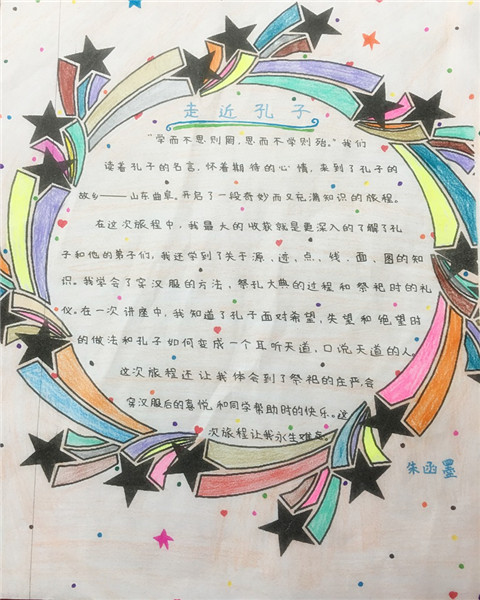 走近孔子
“学而不思则罔，思而不学则殆。”我们
读着孔子的名言，怀着期待的心情，来到了孔子的
故乡——山东曲阜。开启了一段奇妙而又充满知识的旅程。
在这次旅程中，我最大的收获就是更深入的了解了孔
子和他的弟子们，我还学到了关于源、迹、点、线、面、图的知
识。我学会了穿汉服的方法，祭孔大典的过程和祭祀时的礼
仪。在一次讲座中，我知道了孔子面对希望，失望和绝望时
的做法和孔子如何变成一个耳听天道，口说天道的人。
这次旅程还让我体会到了祭祀的庄严，会
穿汉服后的喜悦，和同学帮助时的快乐。这
次旅程让我永生难忘。
朱函墨